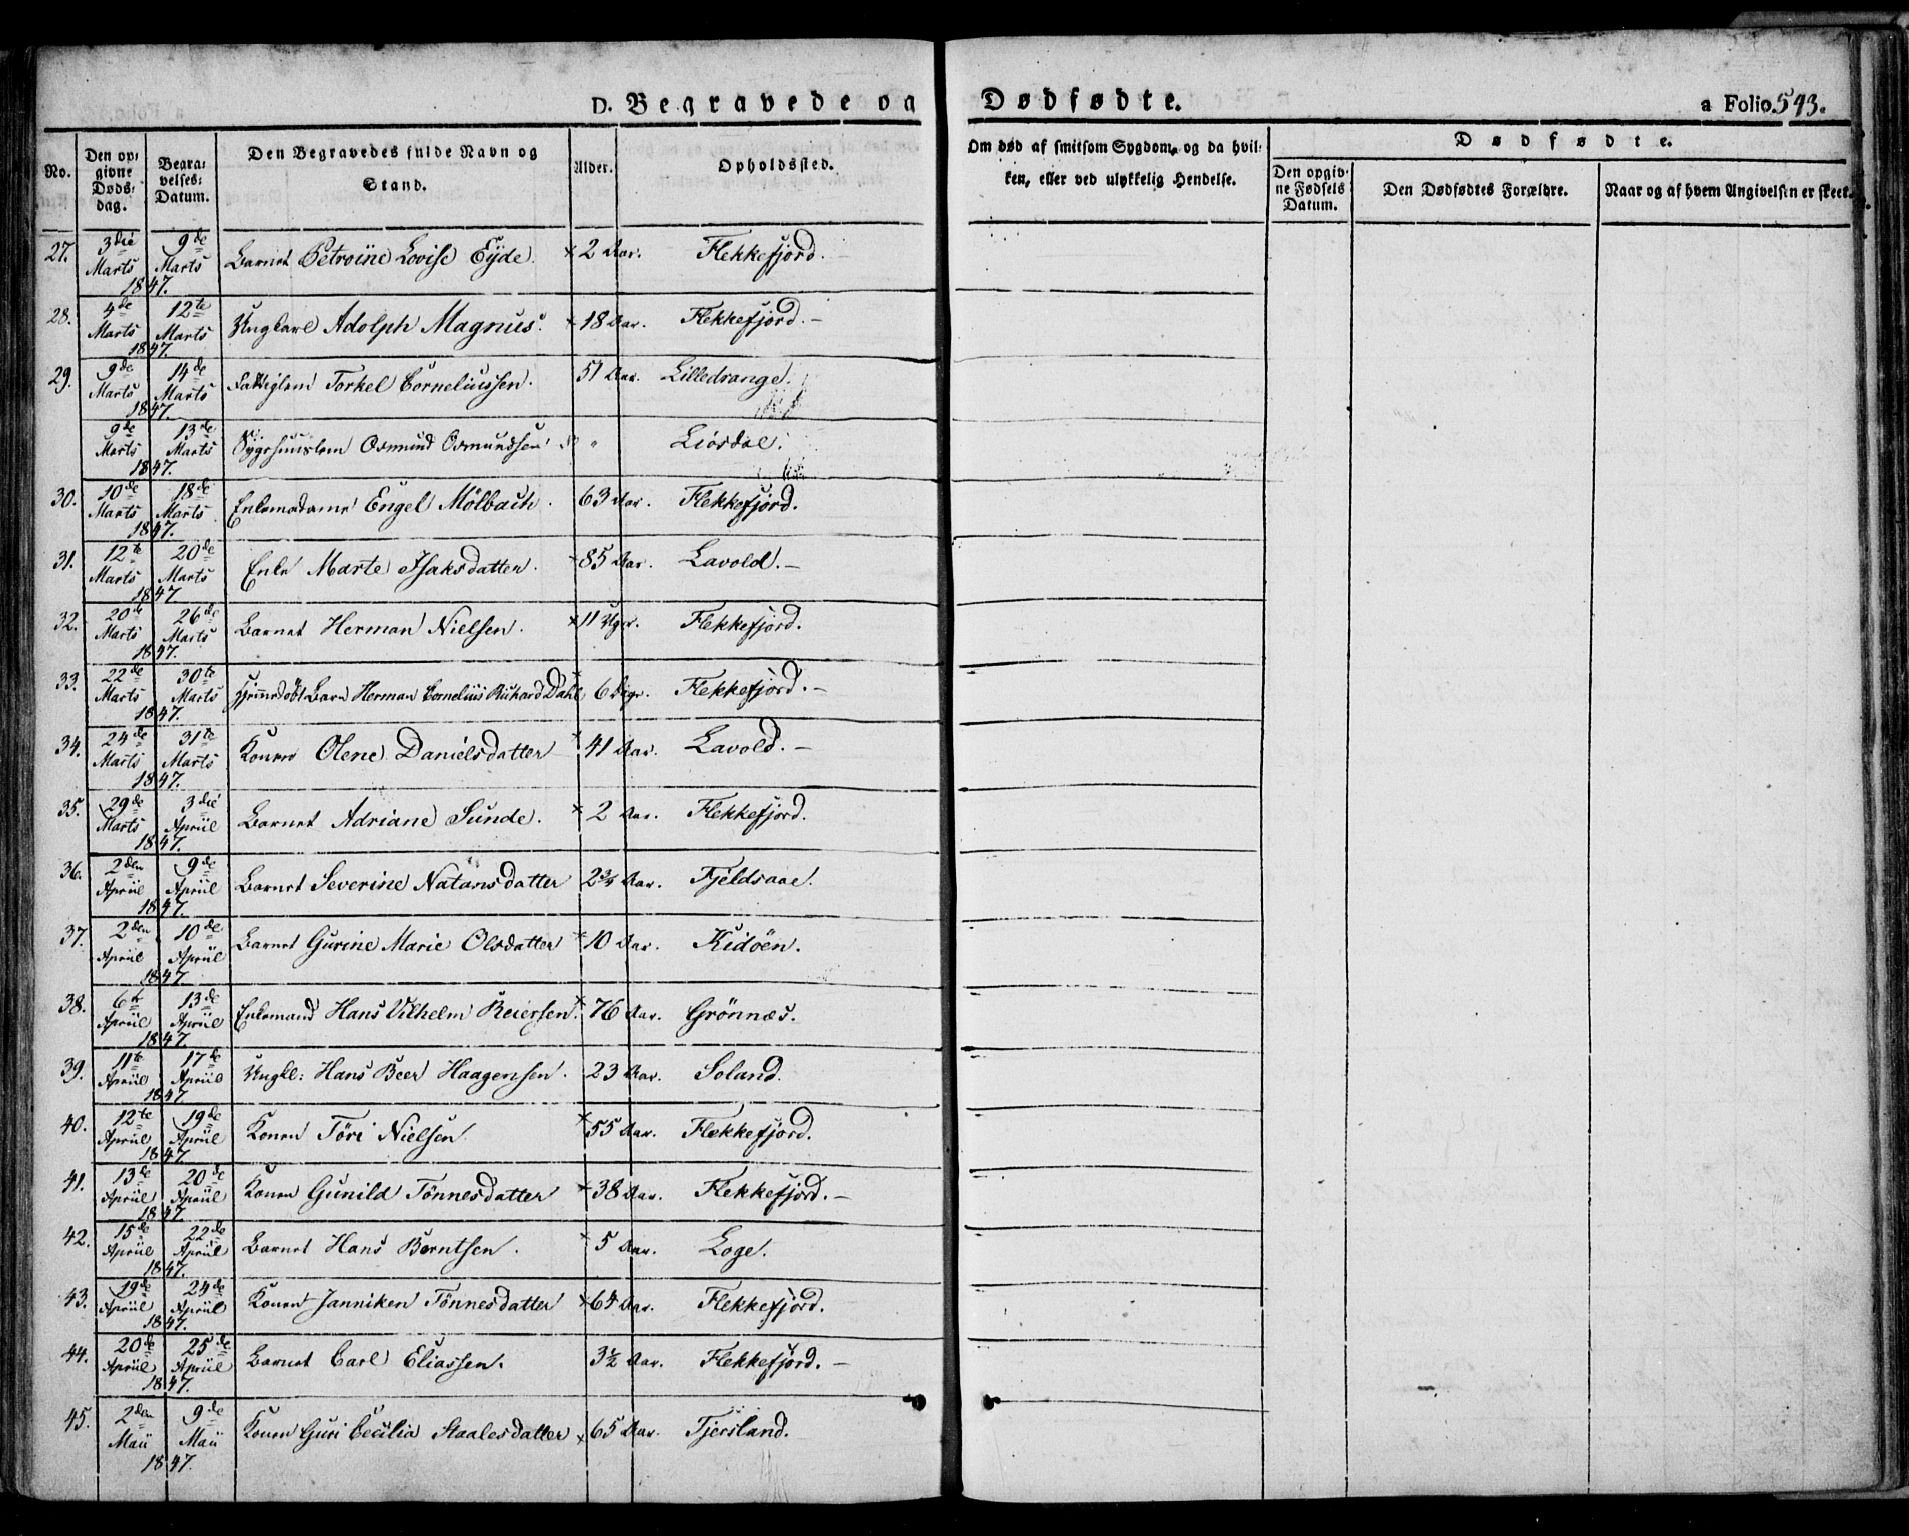 D. Begravede og Dødfødte. a Folio 543.
No. Den opgivne Døds-dag. Begravelses-Datum. Den Begravedes fulde Navn og Stand. Alder. Opholdssted. Om død af smitsom Sygdom, og da hvilken, eller ved ulykkelig Hendelse. Dødfødte. Den opgivne Fødsels Datum. Den Dødfødtes Forældre. Naar og af hvem Angivelsen er skeet.
27. 3die Marts 9de Marts 1847. Barnet Petroine Lovise Eÿde. × 2 Aar. Flekkefjord.
28. 4de Marts 12te Marts 1847. Ungkarl Adolph Magnus. × 18 Aar. Flekkefjord.–
29. 9de Marts 14de Marts 1847. Fattiglem Torkel Corneliussen. 51 Aar. Lilledrange.
9de Marts 13de Marts 1847. Osmund Osmundsen " Liosdal.
30. 10de Marts 18de Marts 1847. Enkemadame Engel Mölbach. 63 Aar. Flekkefjord.
31. 12te Marts 20de Marts 1847 Enke Marte Isaksdatter. × 85 Aar. Lavold.–
32. 20de Marts 26de Marts 1847. Barnet Herman Nielsen. × 11 Uger. Flekkefjord.
33. 22de Marts 30te Marts 1847. Hjemmedöbt Barn Herman Cornelius Rickard Dahl 6 Flekkefjord.–
34. 24de Marts 31te Marts 1847. Konen Olene Danielsdatter × 41 Aar. Lavold.–
35. 29de Marts 3die Apriil 1847. Barnet Adriane Sunde. × 2 Aar. Flekkefjord.
36. 2den Apriil 9de Apriil 1847. Barnet Severine Natansdatter 2¾ Aar. Fjeldsaae.
37. 2den Apriil 10de Apriil 1847 Barnet Gurine Marie Olsdatter × 10 Aar. Kidöen.
38. 6te Apriil 13de Apriil 1847. Enkemand Hans Vilhelm Reiersen. × 76 Aar. Grönnæs.
39. 11te Apriil 17de Apriil 1847 Ungkl: Hans Beer Haagensen. 23 Aar. Soland.
40. 12te Apriil 19de Apriil 1847 Konen Töri Nielsen × 55 Aar. Flekkefjord.
41. 13de Apriil 20de Apriil 1847 Konen Gunild Tönnesdatter × 38 Aar. Flekkefjord.–
42. 15de Apriil 22de Apriil 1847. Barnet Hans Berntsen. × 5 Aar. Loge.
43. 19de Apriil 24de Apriil 1847. Konen Janniken Tönnesdatter × 64 Aar. Flekkefjord.
44. 20de Apriil 25de Apriil 1847. Barnet Carl Eliassen. 3½ Aar. Flekkefjord.–
45. 2den Maii 9de Maii 1847. Konen Guri Cecilia Staalesdatter × 65 Aar. Tjersland.